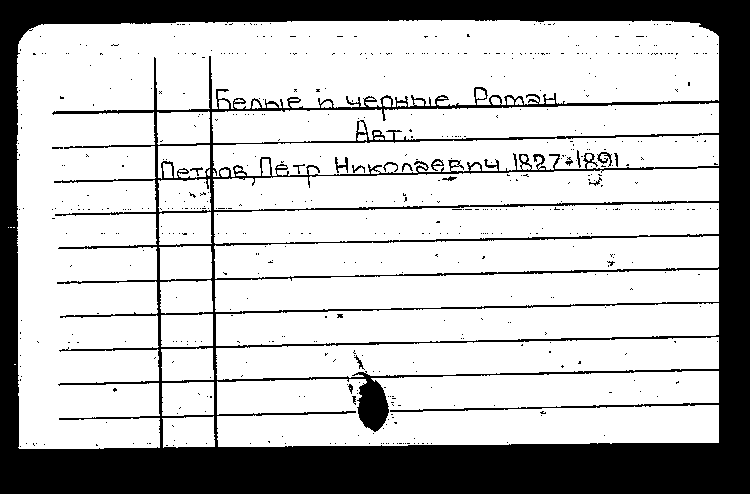 Белые и черные. Роман.
Авт.:
Петров, Пётр Николаевич, 1827-1891.